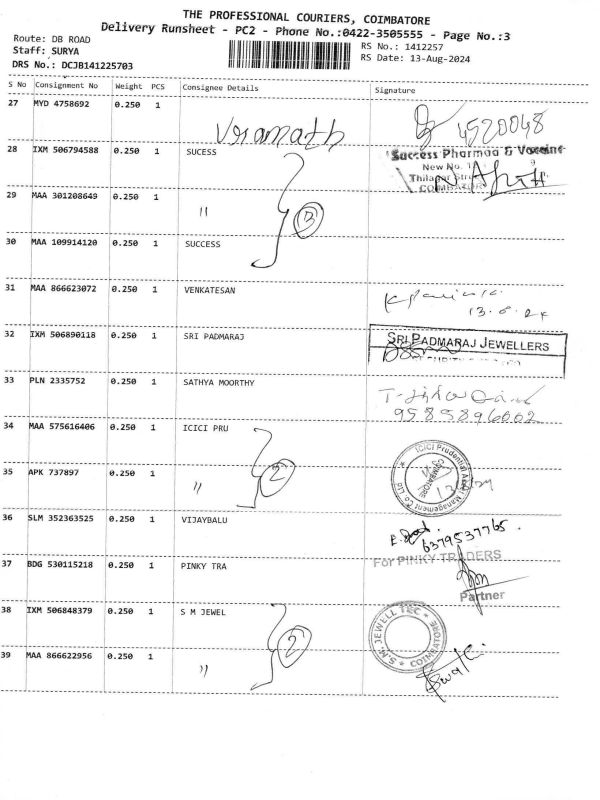 THE PROFESSIONAL COURIERS, COIMBATORE
Delivery Runsheet - PC2 - Phone No.:0422-3505555 - Page No.:3
Route: DB ROAD
RS No.: 1412257
Staff: SURYA
RS Date: 13-Aug-2024
DRS No.: DCJB141225703
S No Consignment No Weight PCS Consignee Details Signature
27 MYD 4758692 0.250 1
4520048
28 IXM 506794588 0.250 1 SUCESS
Success Pharmaa &
New No.
Street
COIMBATORE
29 MAA 301208649 0.250 1 〃
3
30 MAA 109914120 0.250 1 SUCCESS
31 MAA 866623072 0.250 1 VENKATESAN
13.8.24
32 IXM 506890118 0.250 1 SRI PADMARAJ
SRI PADMARAJ JEWELLERS
33 PLN 2335752 0.250 1 SATHYA MOORTHY
9585896002
34 MAA 575616406 0.250 1 ICICI PRU
ICICI Prudential Asset Management Co Ltd
COIMBATORE
35 APK 737897 0.250 1 〃
2
36 SLM 352363525 0.250 1 VIJAYBALU
6379537765.
37 BDG 530115218 0.250 1 PINKY TRA
For PINKY TRADERS
Partner
38 IXM 506848379 0.250 1 S M JEWEL
S.M. JEWELL TEC
COIMBATORE
2
39 MAA 866622956 0.250 1 〃